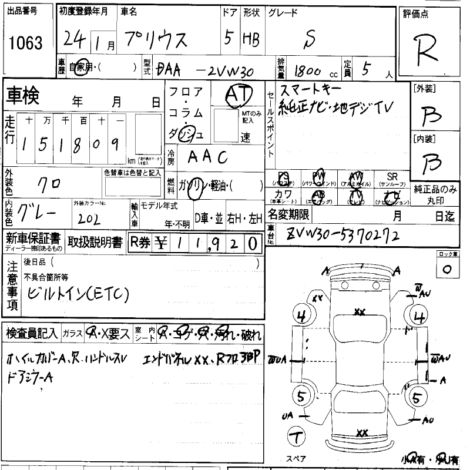 出品番号 1063
初度登録年月 24年1月
車名 プリウス
ドア 5
形状 HB
グレード S
評価点 R
車歴 自家用・( )
型式 DAA-ZVW30
排気量 1800 cc
定員 5 人
車検 年 月 日
走行 十 万 千 百 十 一
151809 km
フロア・コラム・ダッシュ
AT
MTのみ記入 速
冷房 AAC
燃料 ガソリン・軽油・( )
セールスポイント
スマートキー
純正ナビ・地デジTV
PS PW AW SR(サンルーフ)
カワ(本革シート)
純正品のみ丸印
[外装] B
[内装] B
外装色 クロ
色替車は色替と記入
内装色 グレー
外装カラーNo. 202
輸入車 モデル年式 年・不明
D車・並 右H・左H
名変期限 月 日迄
新車保証書 ディーラー印のあるもの
取扱説明書
R券 ¥11,920
車台No. ZVW30-5370272
注意事項
後日品( )
不具合箇所等
ビルトイン(ETC)
ロック車 0
検査員記入
ガラス A・X要ス
室内 シート A・コゲ・穴・汚れ・破れ
ホイルカバーA、R.ハンドルスレ
エンドパネルXX、Rフロア3BP
ドアミラーA
A A
A U
WAU
4 4
XX
A
5 5
UA AU
XX
T
スペア
小A有・小U有